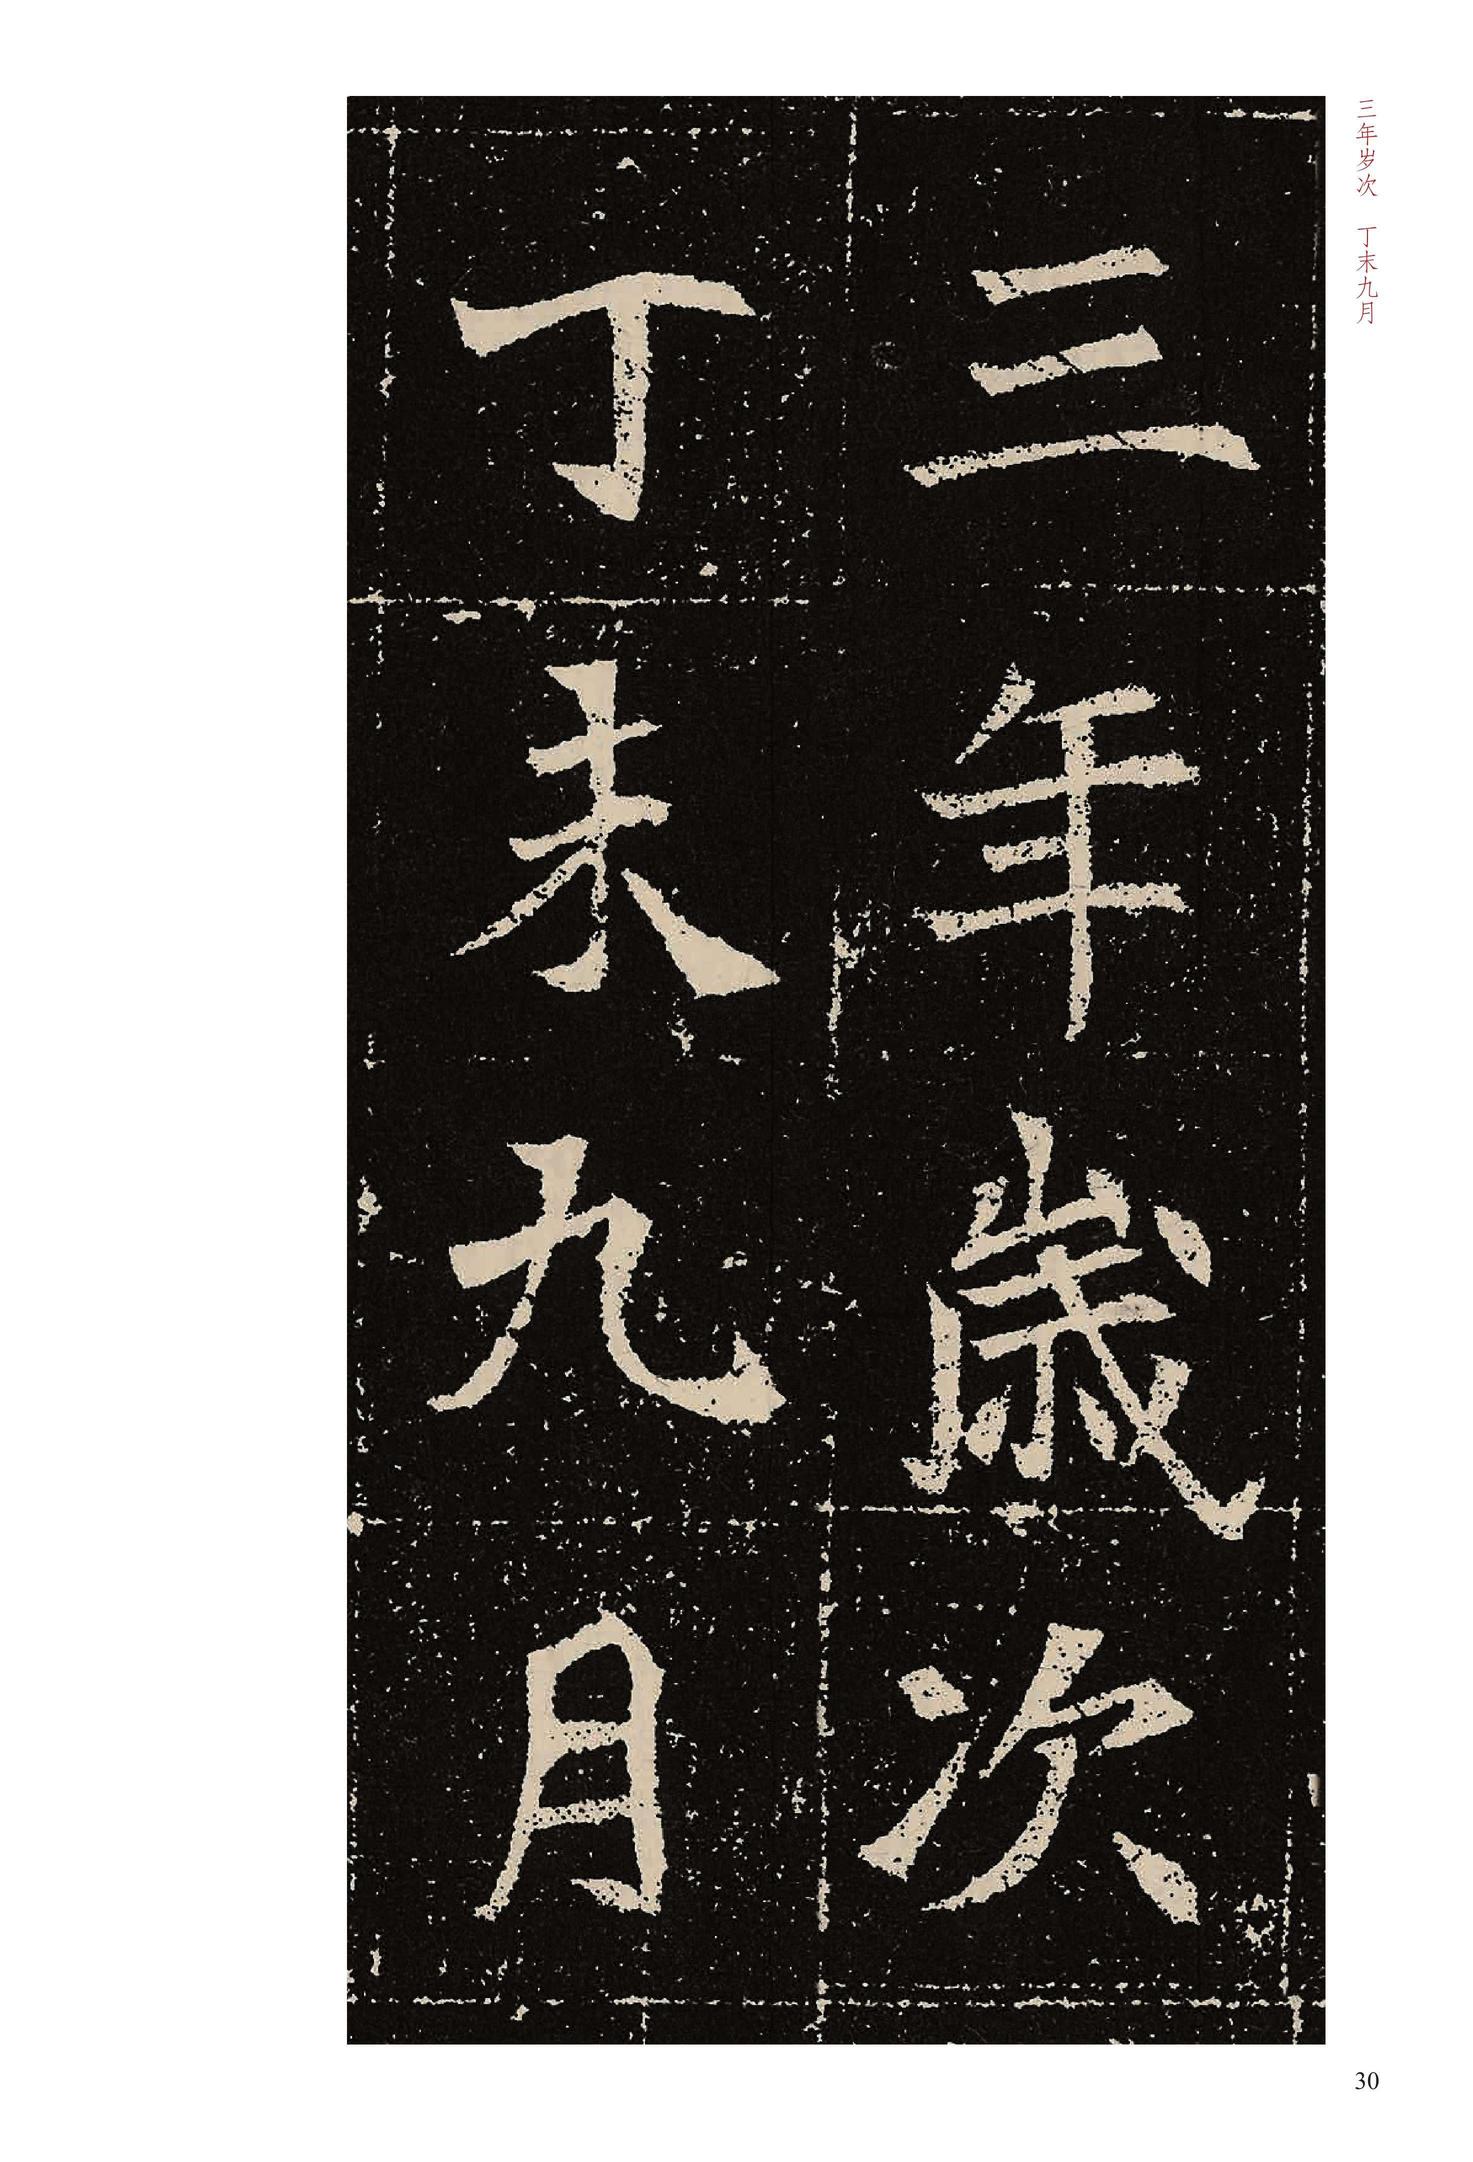 三年岁次　丁末九月
三年歲次
丁未九月
30